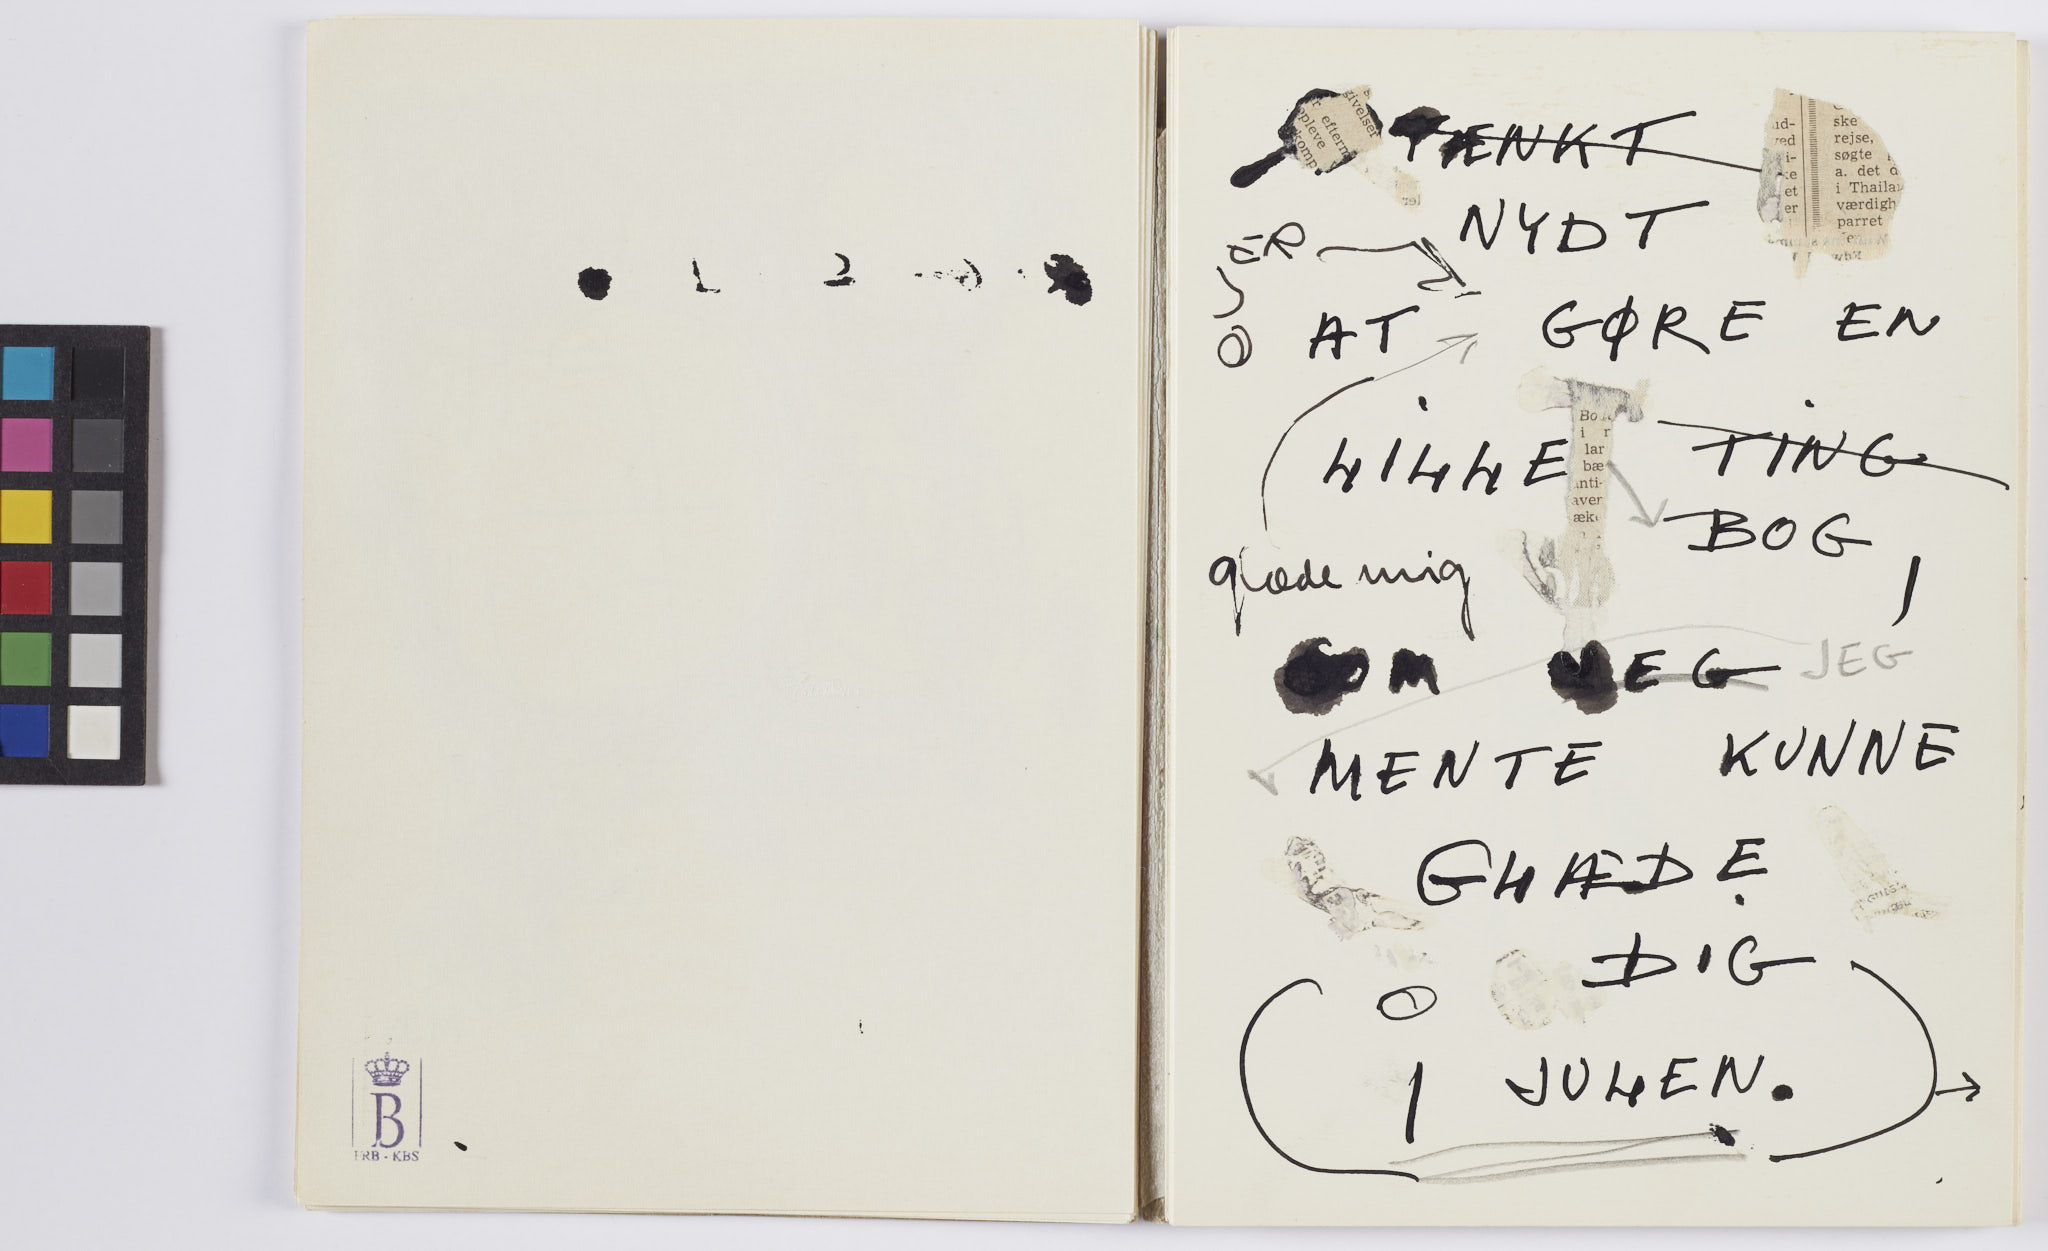 1 2
B
FRB - KBS
givelser
r efterm
opleve
komp
TÆNKT
NYDT
OVER
AT GØRE EN
LILLE TING
BOG,
glæde mig
SOM JEG JEG
MENTE KUNNE
GLÆDE
DIG
I JULEN.
ske
rejse,
søgte
a. det d
i Thailan
værdigh
parret
Bo
i r
lar
bæ
anti-
aver
æk